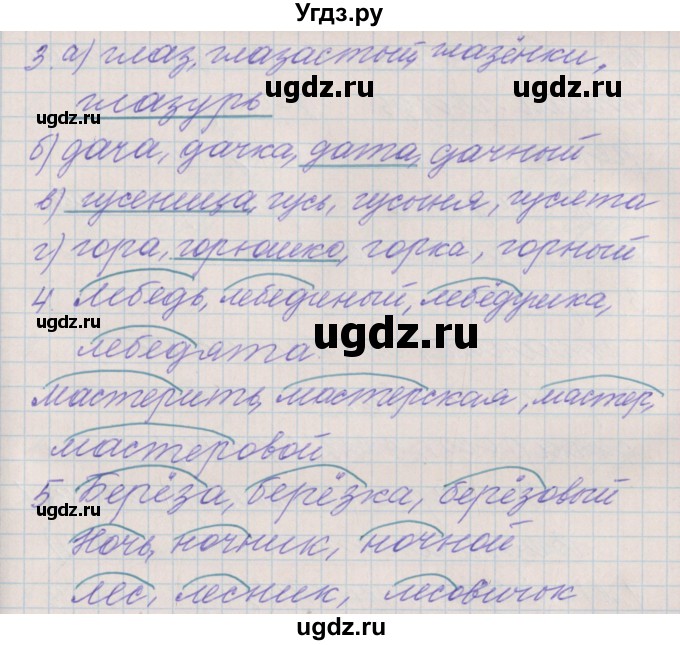 Угдз.ру
3. а) глаз, глазастый, глазёнки,
глазурь
б) дача, дачка, дата, дачный
в) гусеница, гусь, гусыня, гусята
г) гора, горюшко, горка, горный
4 лебедь, лебединый, лебёдушка,
лебедята
мастерить, мастерская, мастер,
мастеровой
5. Берёза, берёзка, берёзовый
Ночь, ночник, ночной
лес, лесник, лесовичок
ugdz.ru
ugdz.ru
ugdz.ru
ugdz.ru
ugdz.ru
ugdz.ru
ugdz.ru
ugdz.ru
ugdz.ru